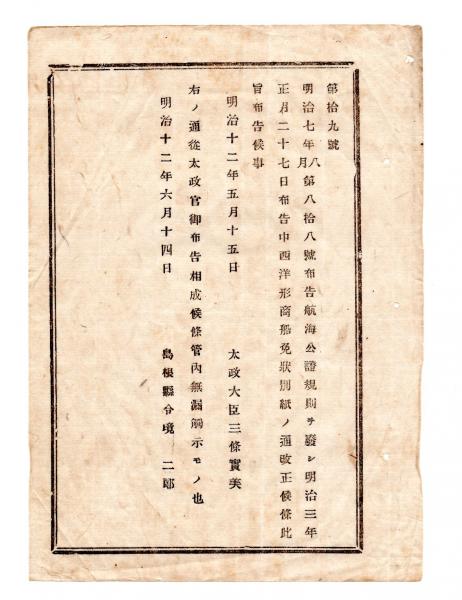 第拾九號
明治七年八月第八拾八號布告航海公證規則ヲ發シ明治三年
正月二十七日布告中西洋形商船免狀別紙ノ通改正候條此
旨布告候事
明治十二年五月十五日 太政大臣三條實美
右ノ通從太政官御布告相成候條管內無漏觸示モノ也
明治十二年六月十四日 島根縣令境二郎